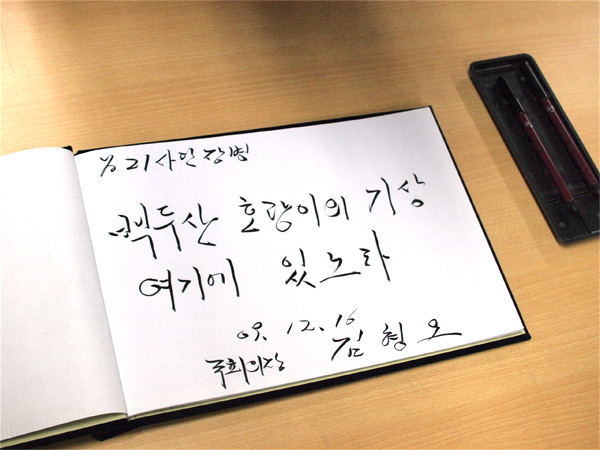 육21사단 장병
백두산 호랑이의 기상
여기에 있노라
09. 12. 16
국회의장 김형오